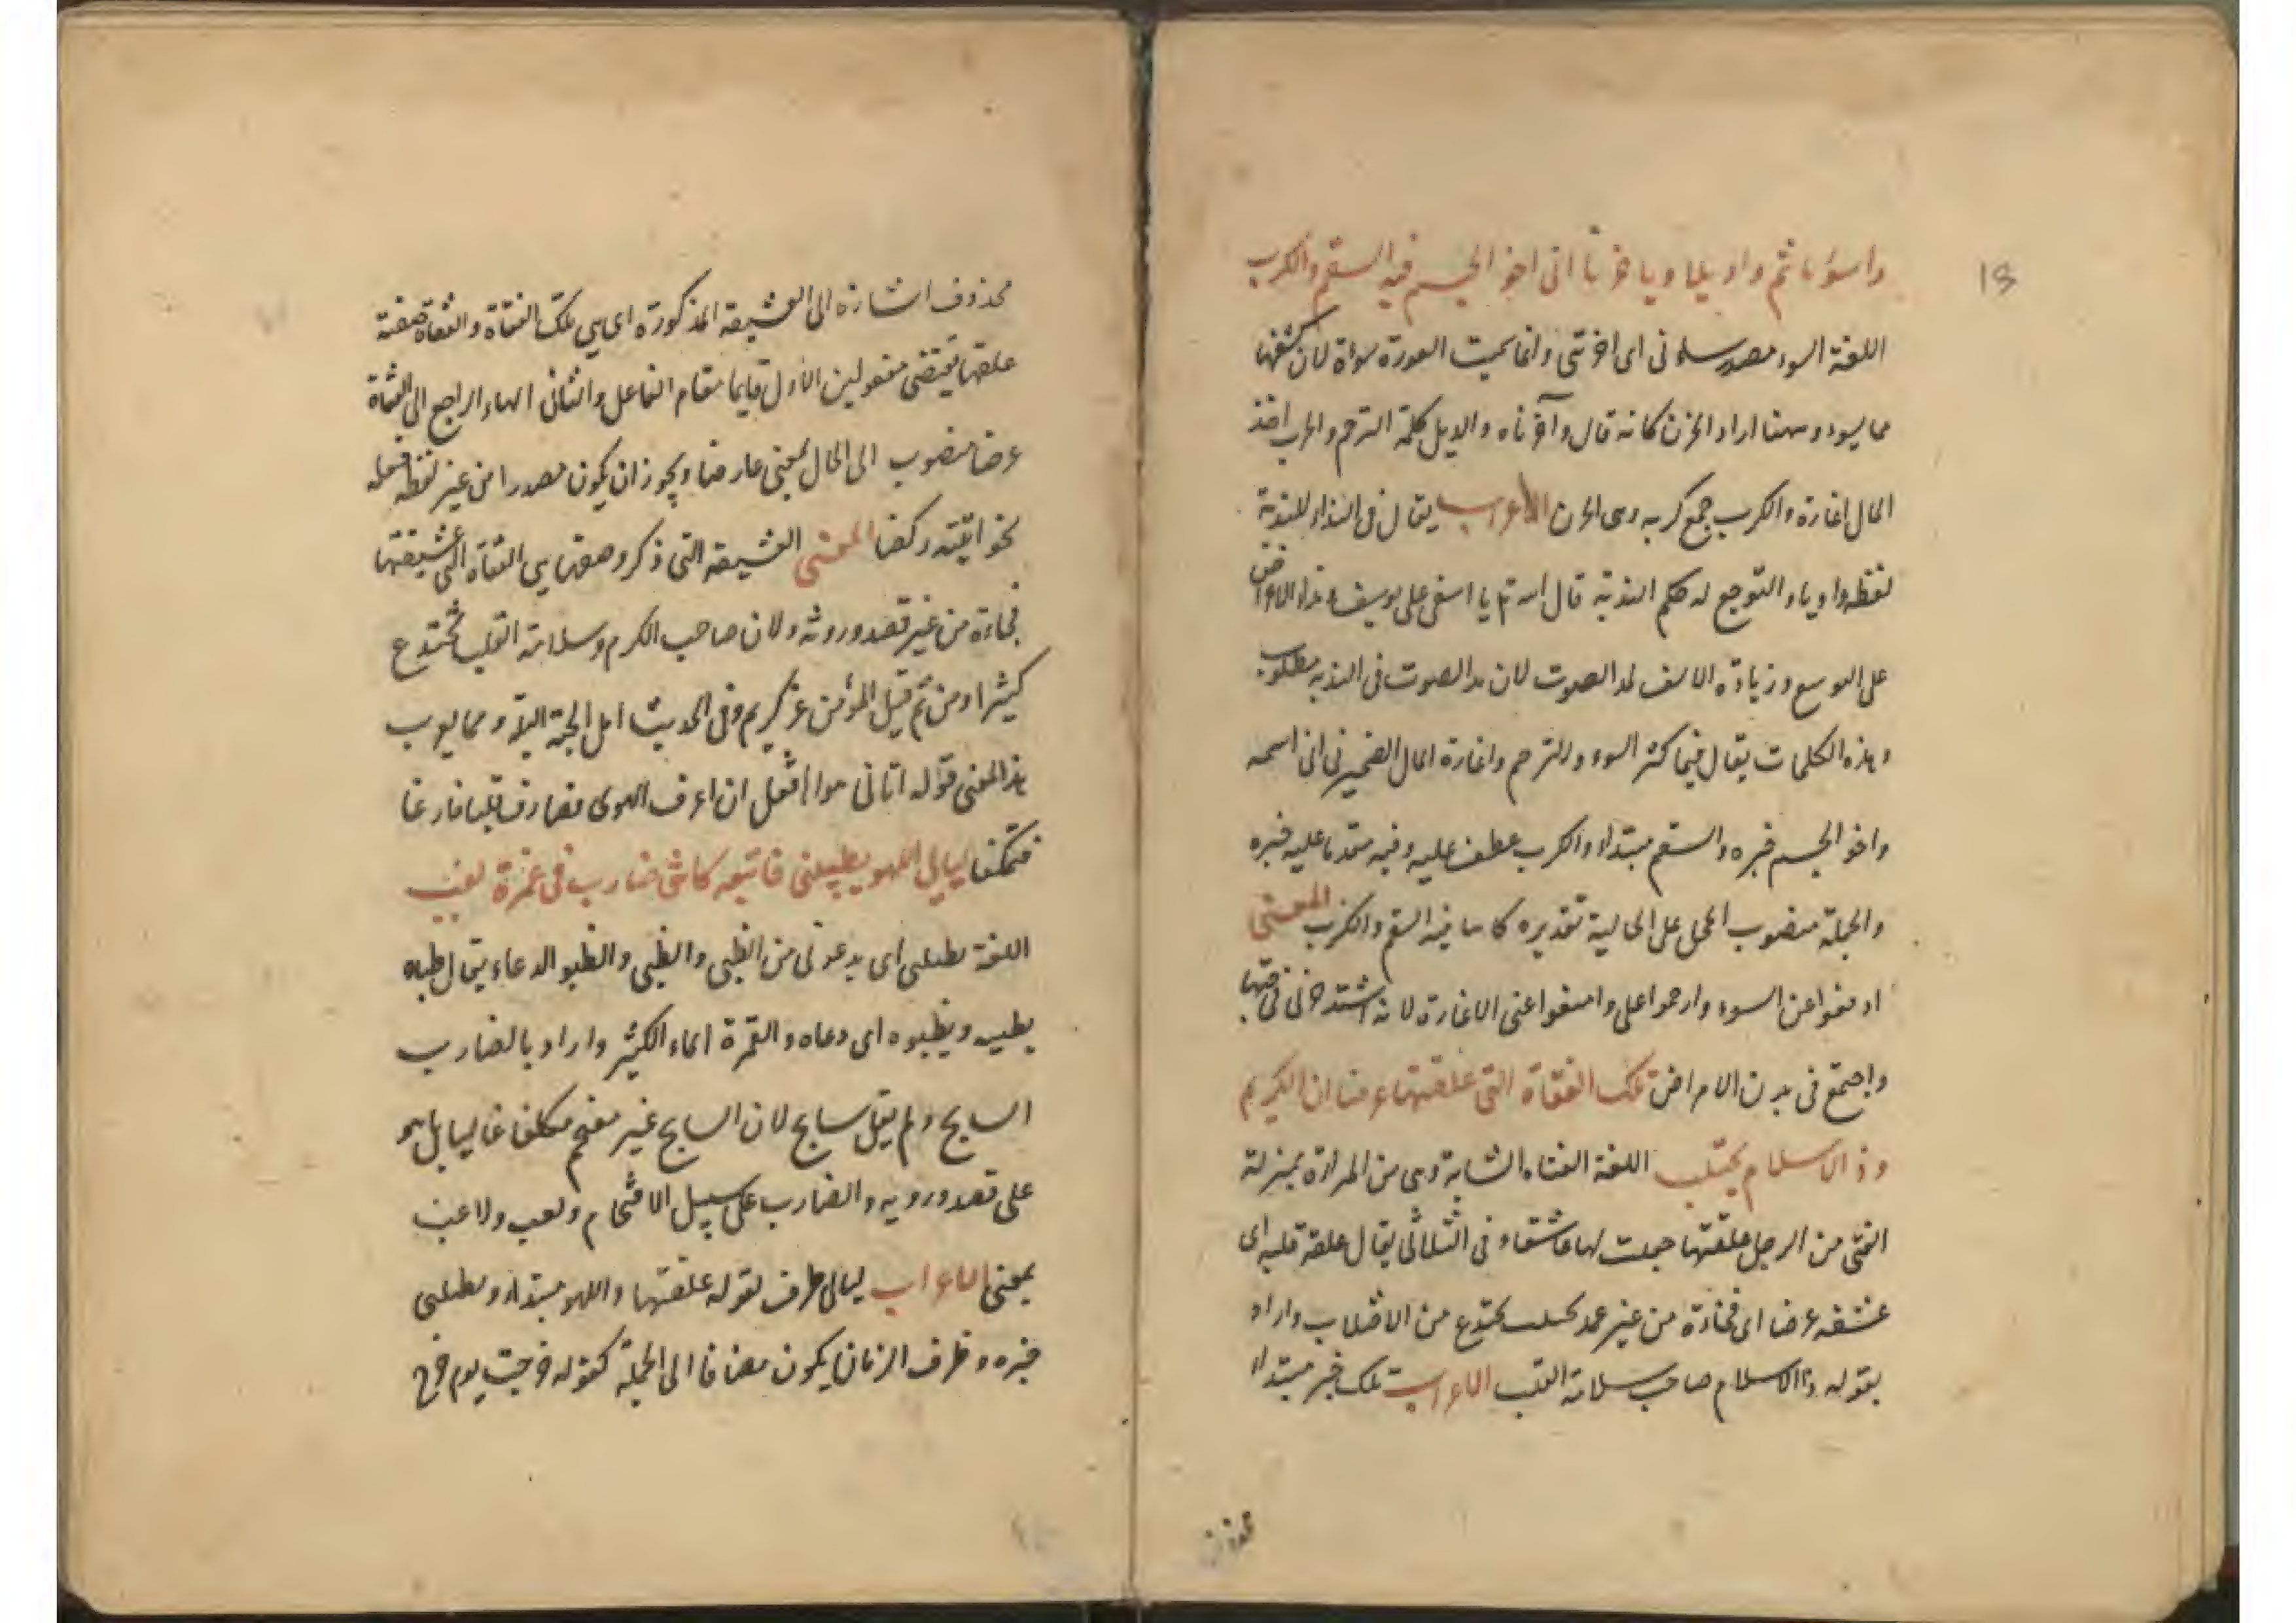 18
واسؤتا ثم واويلا ويا حربا انى اخو الجسم فيه السقم والكرب
اللغة السوء مصدر ساءنى اى احزننى وانما سميت العورة سواة لان كشفها
مما يسوء وههنا اراد الحزن كانه قال واحزناه والويل كلمة الترحم والحرب اخذ
المال اغارة والكرب جمع كربه وهى الحزن الاعراب يقال فى النداء للندبة
لفظه وا ويا والتوجع له حكم الندبة قال الله تع يا اسفى على يوسف
على التوسع وزيادة الالف لمد الصوت لان مد الصوت فى الندبه مطلوب
وهذه الكلمات يقال فيما كثر السوء والترحم واغارة المال الضمير فى انى اسمه
واخو الجسم خبره والسقم مبتداء والكرب عطف عليه وفيه متقدما عليه خبره
والجملة منصوب المحل على الحالية تقديره كاينا فيه السقم والكرب المعنى
ادفعوا عن السوء وارحموا على وامنعوا عنى الاغارة لانه اشتد حزنى
واجتمع فى بدن الامراض تلك الفتاة التى علقتها عرضا ان الكريم
وذ الاسلام يختلب اللغة الفتاه الشابة وهى من المراة بمنزلة
الفتى من الرجل علقتها جعلت لها عاشقا فى الثلاثى يقال علقه قلبه اى
عشقه عرضا اى فجاءة من غير عمد يختلب يختدع من الاختلاب واراد
بقوله ذا الاسلام صاحب سلامة القلب الاعراب تلك خبر مبتداء
محذوف
محذوف اشارة الى العشيقه المذكورة اى هى تلك الفتاة والفتاة صفته
علقها يقتضى مفعولين الاول قايما مقام الفاعل والثانى الهاء الراجع الى الفتاة
عرضا منصوب الى الحال بمعنى عارضا ويجوز ان يكون مصدرا من غير لفظ فعله
نحو اتيته ركضا المعنى العشيقه التى ذكر وصفها هى الفتاة التى عشيقتها
فجاءة من غير قصد وروئه ولان صاحب الكرم وسلامة القلب يختدع
كثيرا ومن ثم قيل المؤمن غر كريم وفى الحديث اهل الجنة البلا ومما يوب
هذا المعنى قوله اتانى هواها قبل ان اعرف الهوى فصادف قلبا فارغا
فتمكنا ليالى اللهو يطبينى فاتبعه كاننى ضارب فى غمرة لعب
اللغة يطبينى اى يدعونى من الطبى والطبى والطبو الدعاء يقال طباه
يطبيه ويطبوه اى دعاه والغمرة الماء الكثير واراد بالضارب
السابح ولم يقل سابح لان السابح غير مقتحم مكلفا غالبا بل هو
على قصد ورويه والضارب على سبيل الاقتحام ولعب ولاعب
بمعنى الاعراب ليالى ظرف لقوله علقتها واللهو مبتداء ويطبينى
خبره وظرف الزمان يكون مضافا الى الجملة كقوله خرجت يوم خرج